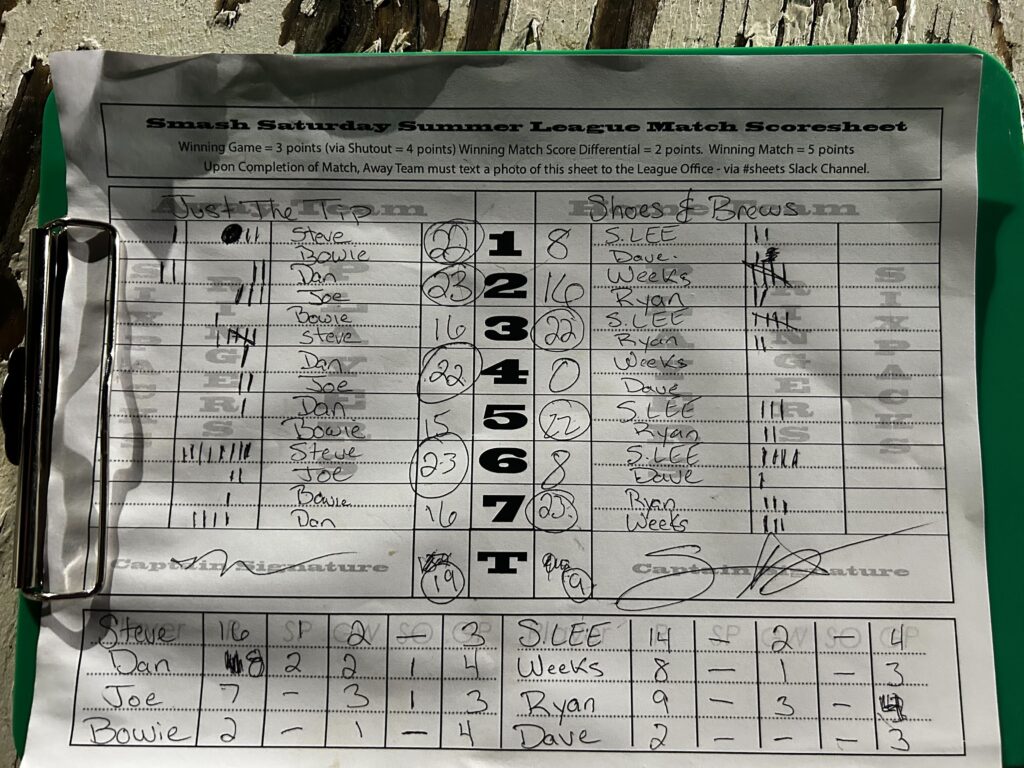 Smash Saturday Summer League Match Scoresheet
Winning Game = 3 points (via Shutout = 4 points) Winning Match Score Differential = 2 points. Winning Match = 5 points
Upon Completion of Match, Away Team must text a photo of this sheet to the League Office - via #sheets Slack Channel.
Just The Tip Shoes & Brews
Steve 22 1 8 S.LEE
Bowie Dave
Dan 23 2 16 Weeks
Joe Ryan
Bowie 16 3 22 S.LEE
Steve Ryan
Dan 22 4 0 Weeks
Joe Dave
Dan 15 5 22 S.LEE
Bowie Ryan
Steve 23 6 8 S.LEE
Joe Dave
Bowie 16 7 23 Ryan
Dan Weeks
Captain Signature 19 T 9 Captain Signature
Steve 16 1 2 — 3 S.LEE 14 — 2 — 4
Dan 8 2 2 1 4 Weeks 8 — 1 — 3
Joe 7 — 3 1 3 Ryan 9 — 3 — 4
Bowie 2 — 1 — 4 Dave 2 — — — 3